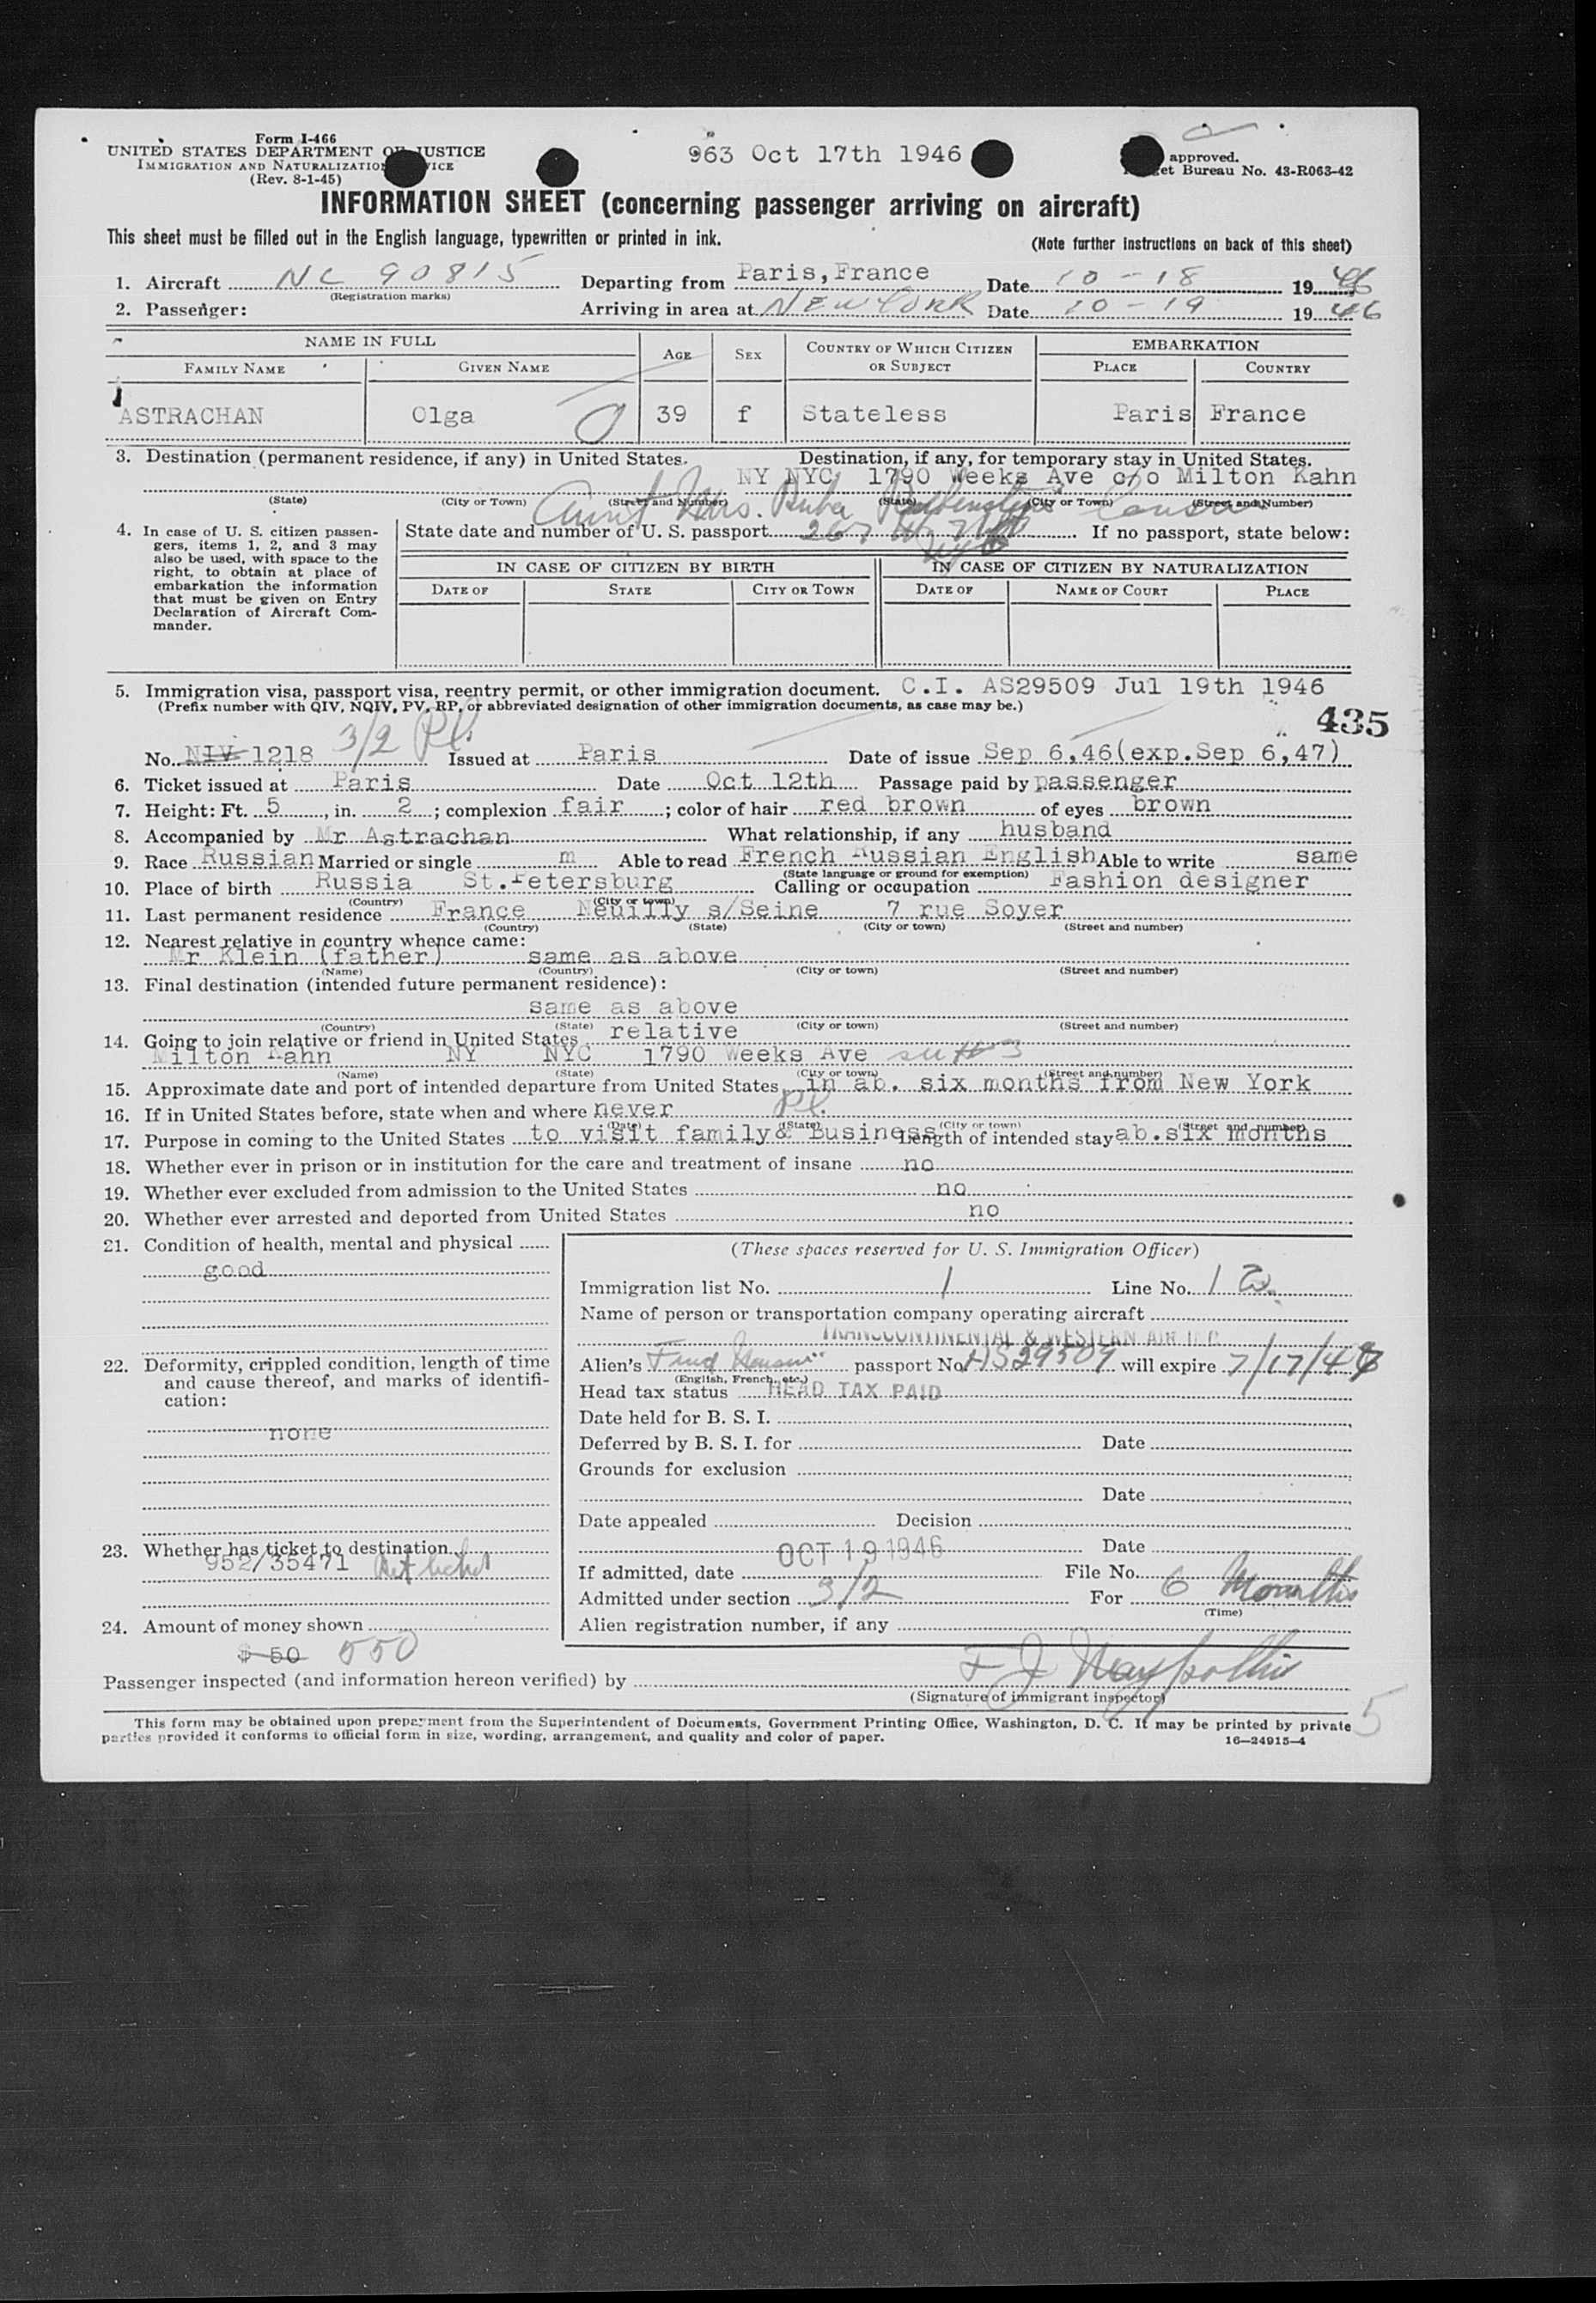 Form I-466
UNITED STATES DEPARTMENT OF JUSTICE
IMMIGRATION AND NATURALIZATION SERVICE
(Rev. 8-1-45)
963 Oct 17th 1946
approved.
Bureau No. 43-R063-42
INFORMATION SHEET (concerning passenger arriving on aircraft)
This sheet must be filled out in the English language, typewritten or printed in ink.
(Note further instructions on back of this sheet)
1. Aircraft NC 90815 Departing from Paris, France Date 10-18 1946
(Registration marks)
2. Passenger: Arriving in area at NEW YORK Date 10-19 1946
NAME IN FULL AGE SEX COUNTRY OF WHICH CITIZEN OR SUBJECT EMBARKATION
FAMILY NAME GIVEN NAME PLACE COUNTRY
ASTRACHAN Olga 39 f Stateless Paris France
3. Destination (permanent residence, if any) in United States. Destination, if any, for temporary stay in United States.
NY NYC 1790 Weeks Ave c/o Milton Kahn
(State) (City or Town) (Street and Number) (State) (City or Town) (Street and Number)
Aunt Mrs. Cousin
4. In case of U. S. citizen passengers, items 1, 2, and 3 may also be used, with space to the right, to obtain at place of embarkation the information that must be given on Entry Declaration of Aircraft Commander.
State date and number of U. S. passport 267 W 71 If no passport, state below:
IN CASE OF CITIZEN BY BIRTH IN CASE OF CITIZEN BY NATURALIZATION
DATE OF STATE CITY OR TOWN DATE OF NAME OF COURT PLACE
5. Immigration visa, passport visa, reentry permit, or other immigration document. C.I. AS29509 Jul 19th 1946
(Prefix number with QIV, NQIV, PV, RP, or abbreviated designation of other immigration documents, as case may be.)
435
3/2 Pl.
No. NIV 1218 Issued at Paris Date of issue Sep 6,46(exp.Sep 6,47)
6. Ticket issued at Paris Date Oct 12th Passage paid by passenger
7. Height: Ft. 5, in. 2; complexion fair; color of hair red brown of eyes brown
8. Accompanied by Mr Astrachan What relationship, if any husband
9. Race Russian Married or single m Able to read French Russian English Able to write same
(State language or ground for exemption)
10. Place of birth Russia St.Petersburg Calling or occupation Fashion designer
(Country) (City or town)
11. Last permanent residence France Neuilly s/Seine 7 rue Soyer
(Country) (State) (City or town) (Street and number)
12. Nearest relative in country whence came:
Mr Klein (father) same as above
(Name) (Country) (City or town) (Street and number)
13. Final destination (intended future permanent residence):
same as above
(Country) (State) (City or town) (Street and number)
14. Going to join relative or friend in United States relative
Milton Kahn NY NYC 1790 Weeks Ave
(Name) (State) (City or town) (Street and number)
15. Approximate date and port of intended departure from United States in ab. six months from New York
16. If in United States before, state when and where never Pl.
(Date) (State) (City or town) (Street and number)
17. Purpose in coming to the United States to visit family & Business Length of intended stay ab.six months
18. Whether ever in prison or in institution for the care and treatment of insane no
19. Whether ever excluded from admission to the United States no
20. Whether ever arrested and deported from United States no
21. Condition of health, mental and physical
good
22. Deformity, crippled condition, length of time and cause thereof, and marks of identification:
none
23. Whether has ticket to destination
952/35471 Ret ticket
24. Amount of money shown
$ 50 550
(These spaces reserved for U. S. Immigration Officer)
Immigration list No. 1 Line No. 1
Name of person or transportation company operating aircraft
TRANSCONTINENTAL & WESTERN AIR INC
Alien's passport No. AS29509 will expire 7/17/48
(English, French, etc.)
Head tax status HEAD TAX PAID
Date held for B. S. I.
Deferred by B. S. I. for Date
Grounds for exclusion
Date
Date appealed Decision
Date
OCT 19 1946
If admitted, date File No.
Admitted under section 3/2 For 6 Months
(Time)
Alien registration number, if any
Passenger inspected (and information hereon verified) by F J
(Signature of immigrant inspector)
This form may be obtained upon prepayment from the Superintendent of Documents, Government Printing Office, Washington, D. C. It may be printed by private
parties provided it conforms to official form in size, wording, arrangement, and quality and color of paper.
16—24915-4
5